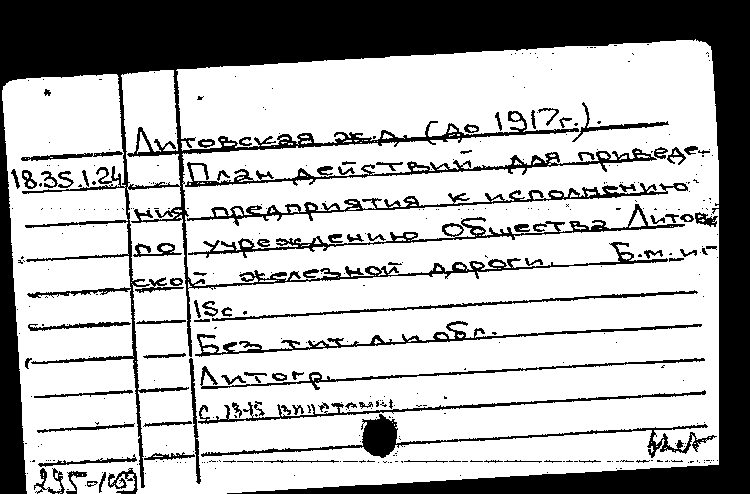 Литовская ж.д. (до 1917г.).
18.35.1.24 План действий для приведе-
ния предприятия к исполнению
по учреждению Общества Литов
ской железной дороги. Б.м. и г
15с.
Без тит. л. и обл.
Литогр.
с. 13-15
295-1039